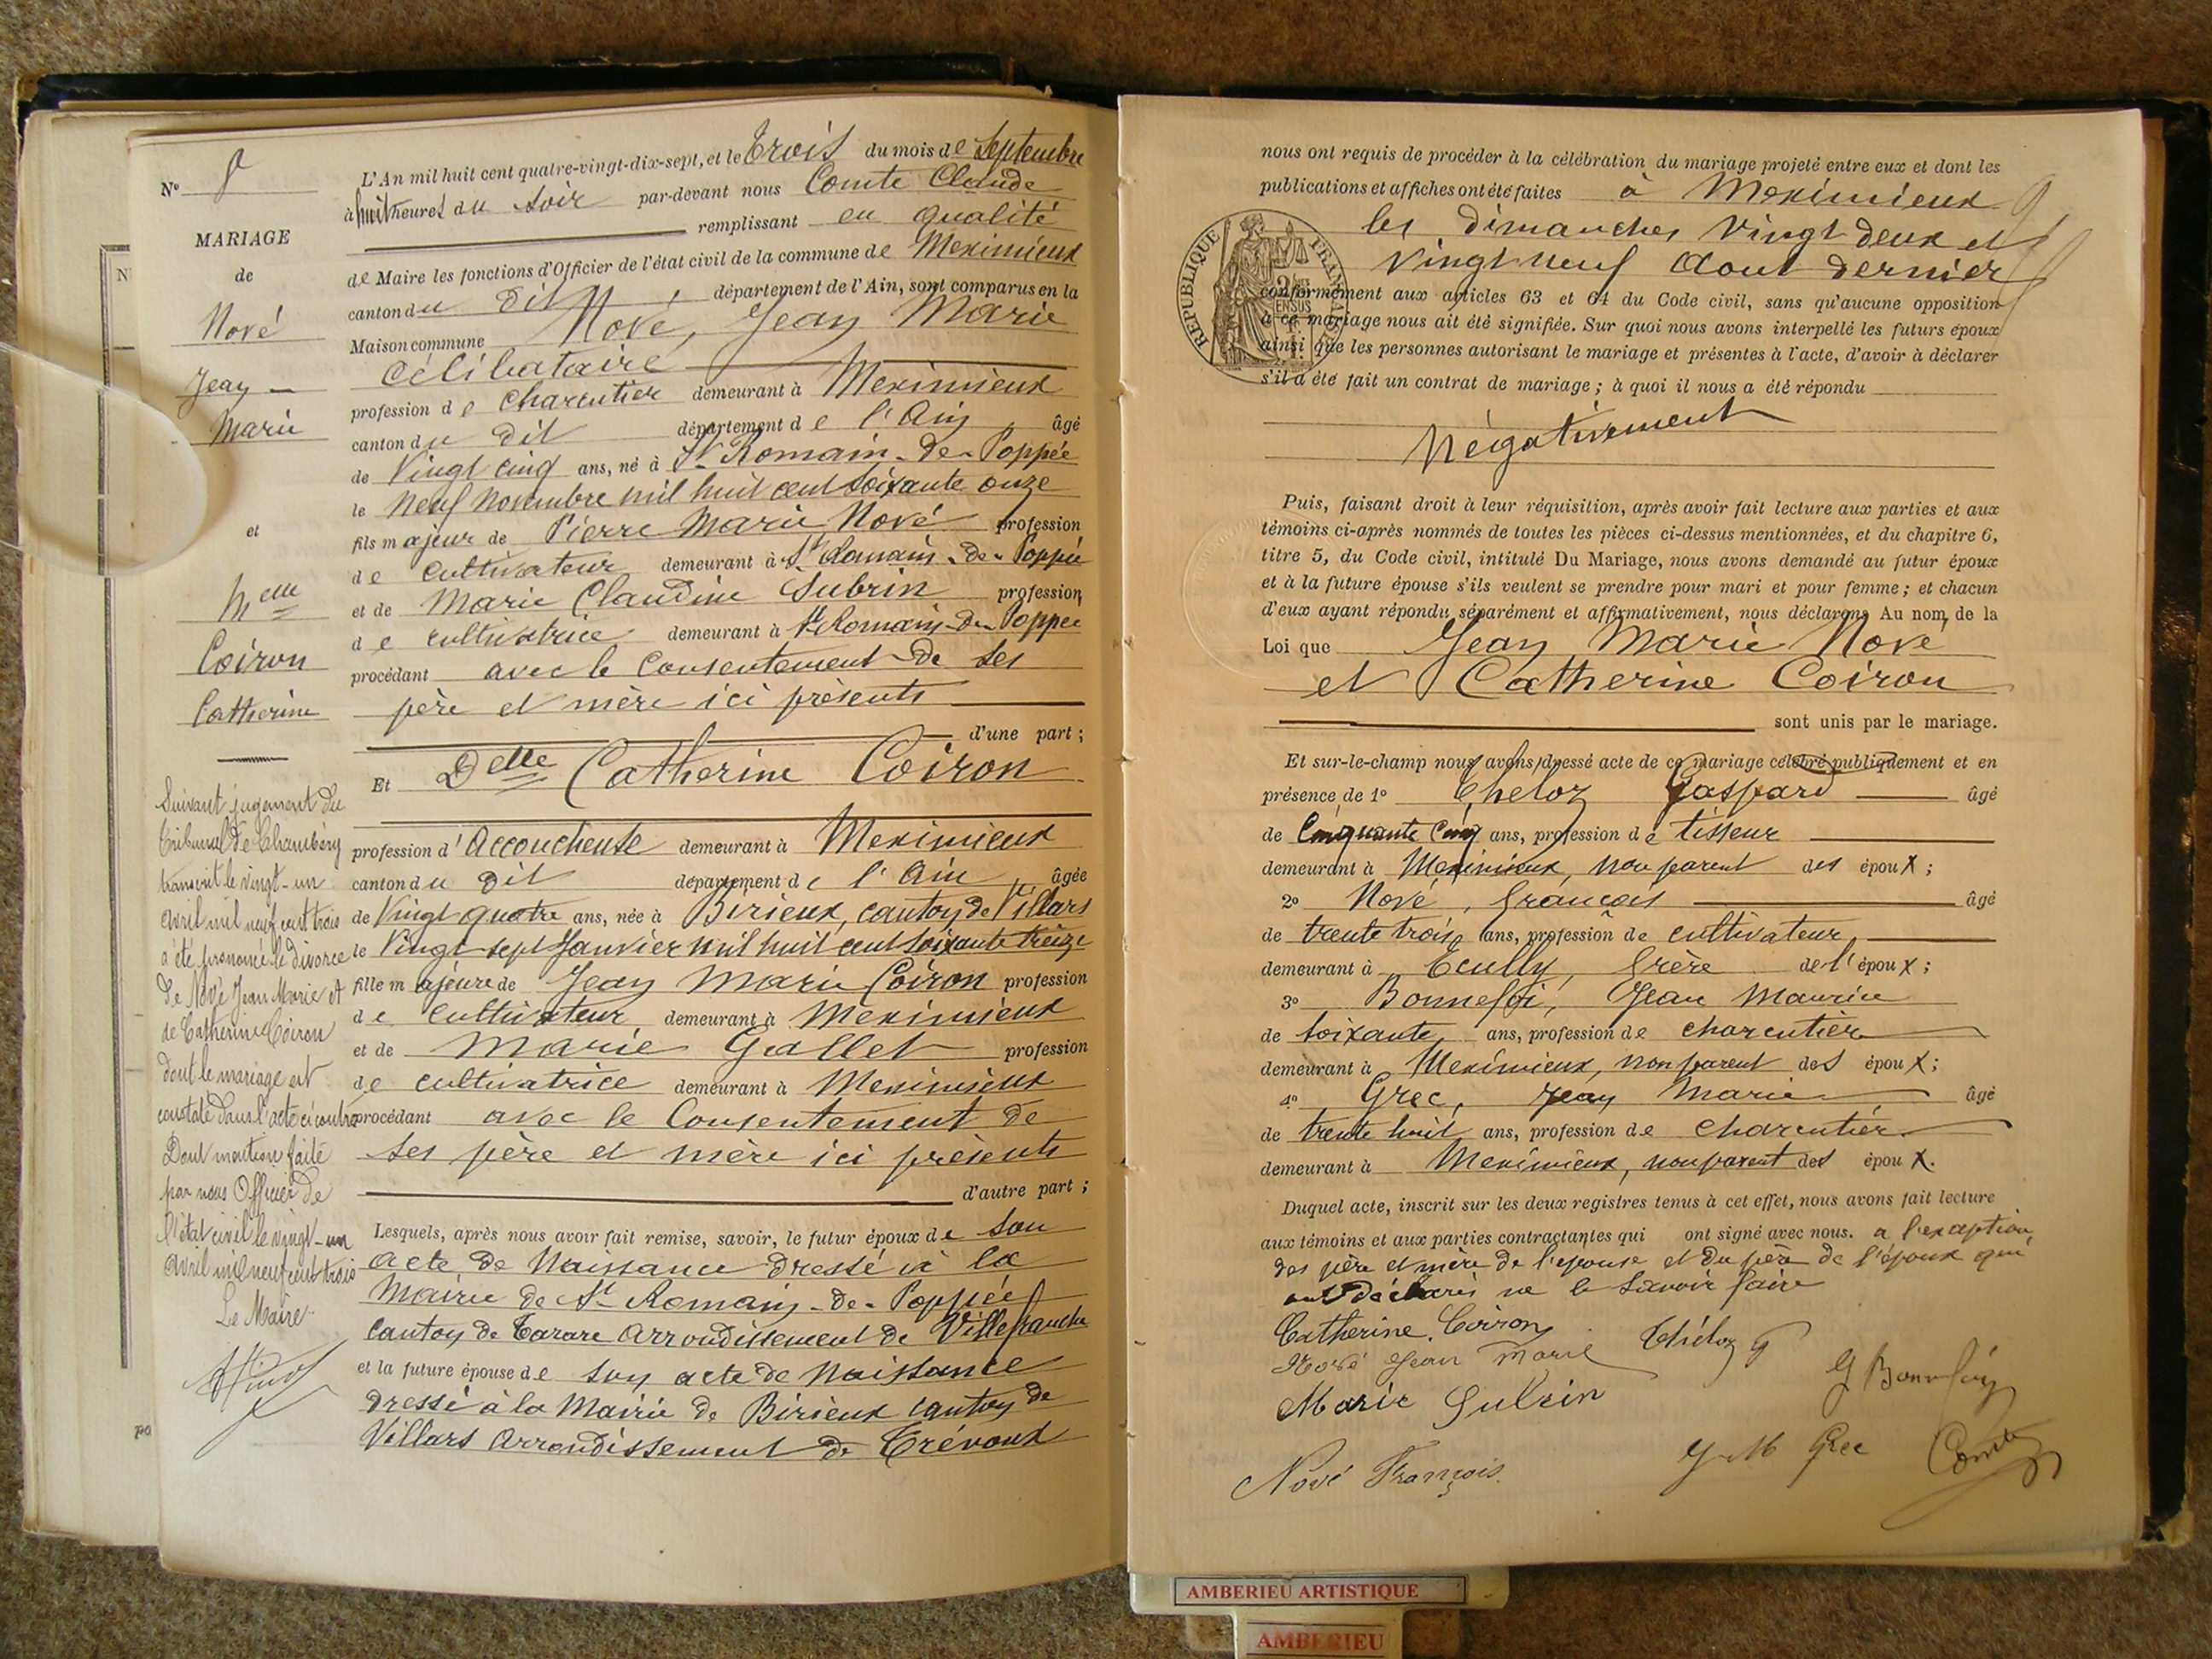 Nº 8
MARIAGE
de
Nové
Jean
Marie
et
Melle
Coiron
Catherine
Suivant jugement du
Tribunal de Chambéry
transcrit le vingt-un
avril mil neuf cent trois
a été prononcé le divorce
de Nové Jean Marie et
de Catherine Coiron
dont le mariage est
constaté dans l'acte ci contre
Dont mention faite
par nous Officier de
l'état civil le vingt-un
avril mil neuf cent trois
Le Maire
L'An mil huit cent quatre-vingt-dix-sept, et le Trois du mois de Septembre
à huit heures du soir par-devant nous Comte Claude
remplissant en qualité
de Maire les fonctions d'Officier de l'état civil de la commune de Meximieux
canton du dit, département de l'Ain, sont comparus en la
Maison commune Nové, Jean Marie
célibataire
profession de charcutier demeurant à Meximieux
canton du dit département de l'Ain, âgé
de Vingt cinq ans, né à St Romain-de-Poppée
le neuf novembre mil huit cent soixante onze
fils majeur de Pierre Marie Nové profession
de cultivateur demeurant à St Romain-de-Poppée
et de Marie Claudine Subrin profession
de cultivatrice demeurant à St Romain-de-Poppée
procédant avec le Consentement de ses
père et mère ici présents
d'une part ;
Et Delle Catherine Coiron
profession d'Accoucheuse demeurant à Meximieux
canton du dit département de l'Ain, âgée
de Vingt quatre ans, née à Birieux, canton de Villars
le Vingt-sept Janvier mil huit cent soixante treize
fille majeure de Jean Marie Coiron profession
de cultivateur demeurant à Meximieux
et de Marie Gallet profession
de cultivatrice demeurant à Meximieux
procédant avec le Consentement de
ses père et mère ici présents
d'autre part ;
Lesquels, après nous avoir fait remise, savoir, le futur époux de son
acte de Naissance dressé à la
Mairie de St Romain-de-Poppée
canton de Tarare arrondissement de Villefranche
et la future épouse de son acte de Naissance
dressé à la Mairie de Birieux canton de
Villars arrondissement de Trévoux
nous ont requis de procéder à la célébration du mariage projeté entre eux et dont les
publications et affiches ont été faites à Meximieux
les dimanches vingt deux et
vingt neuf Aout dernier
RÉPUBLIQUE FRANÇAISE
conformément aux articles 63 et 64 du Code civil, sans qu'aucune opposition
à ce mariage nous ait été signifiée. Sur quoi nous avons interpellé les futurs époux
ainsi que les personnes autorisant le mariage et présentes à l'acte, d'avoir à déclarer
s'il a été fait un contrat de mariage ; à quoi il nous a été répondu
Négativement
Puis, faisant droit à leur réquisition, après avoir fait lecture aux parties et aux
témoins ci-après nommés de toutes les pièces ci-dessus mentionnées, et du chapitre 6,
titre 5, du Code civil, intitulé Du Mariage, nous avons demandé au futur époux
et à la future épouse s'ils veulent se prendre pour mari et pour femme ; et chacun
d'eux ayant répondu séparément et affirmativement, nous déclarons Au nom de la
Loi que Jean Marie Nové
et Catherine Coiron
sont unis par le mariage.
Et sur-le-champ nous avons dressé acte de ce mariage célébré publiquement et en
présence de 1º Theloz Gaspard âgé
de Cinquante Cinq ans, profession de tisseur
demeurant à Meximieux, non parent des époux ;
2º Nové, François âgé
de trente trois ans, profession de cultivateur
demeurant à Ecully, frère de l'époux ;
3º Bonnefoi, Jean Maurice
de soixante ans, profession de charcutier
demeurant à Meximieux, non parent des époux ;
4º Grec, Jean Marie âgé
de trente huit ans, profession de charcutier
demeurant à Meximieux, non parent des époux.
Duquel acte, inscrit sur les deux registres tenus à cet effet, nous avons fait lecture
aux témoins et aux parties contractantes qui ont signé avec nous. a l'exception
des père et mère de l'épouse et du père de l'époux qui
ont déclarés ne le savoir faire
Catherine Coiron Théloz G
Nové Jean Marie
G Bonnefoy
Marie Subrin
J M Grec Comte
Nové François.
AMBERIEU ARTISTIQUE
AMBERIEU